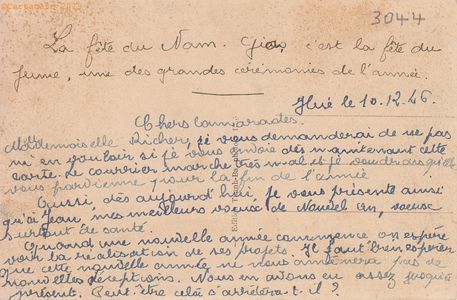 ©Cartapole 2012
3044
La fête du Nam-Giao, c'est la fête du
, une des grandes cérémonies de l'année.
Hué le 10.12.46
Chers camarades.
Mademoiselle Richer, je vous demanderai de ne pas
m'en vouloir si je vous envoie dès maintenant cette
carte. Le courrier marche très mal et je voudrais qu'elle
vous parvienne pour la fin de l'année
Aussi, dès aujourd'hui je vous présente ainsi
qu'à Jean, mes meilleurs vœux de Nouvel an, vœux
surtout de santé.
Quand une nouvelle année commence on espère
voir la réalisation de ses projets. Il faut bien espérer
que cette nouvelle année ne nous amènera pas de
nouvelles déceptions. Nous en avons eu assez jusqu'à
présent. Peut-être cela s'arrêtera t-il ?